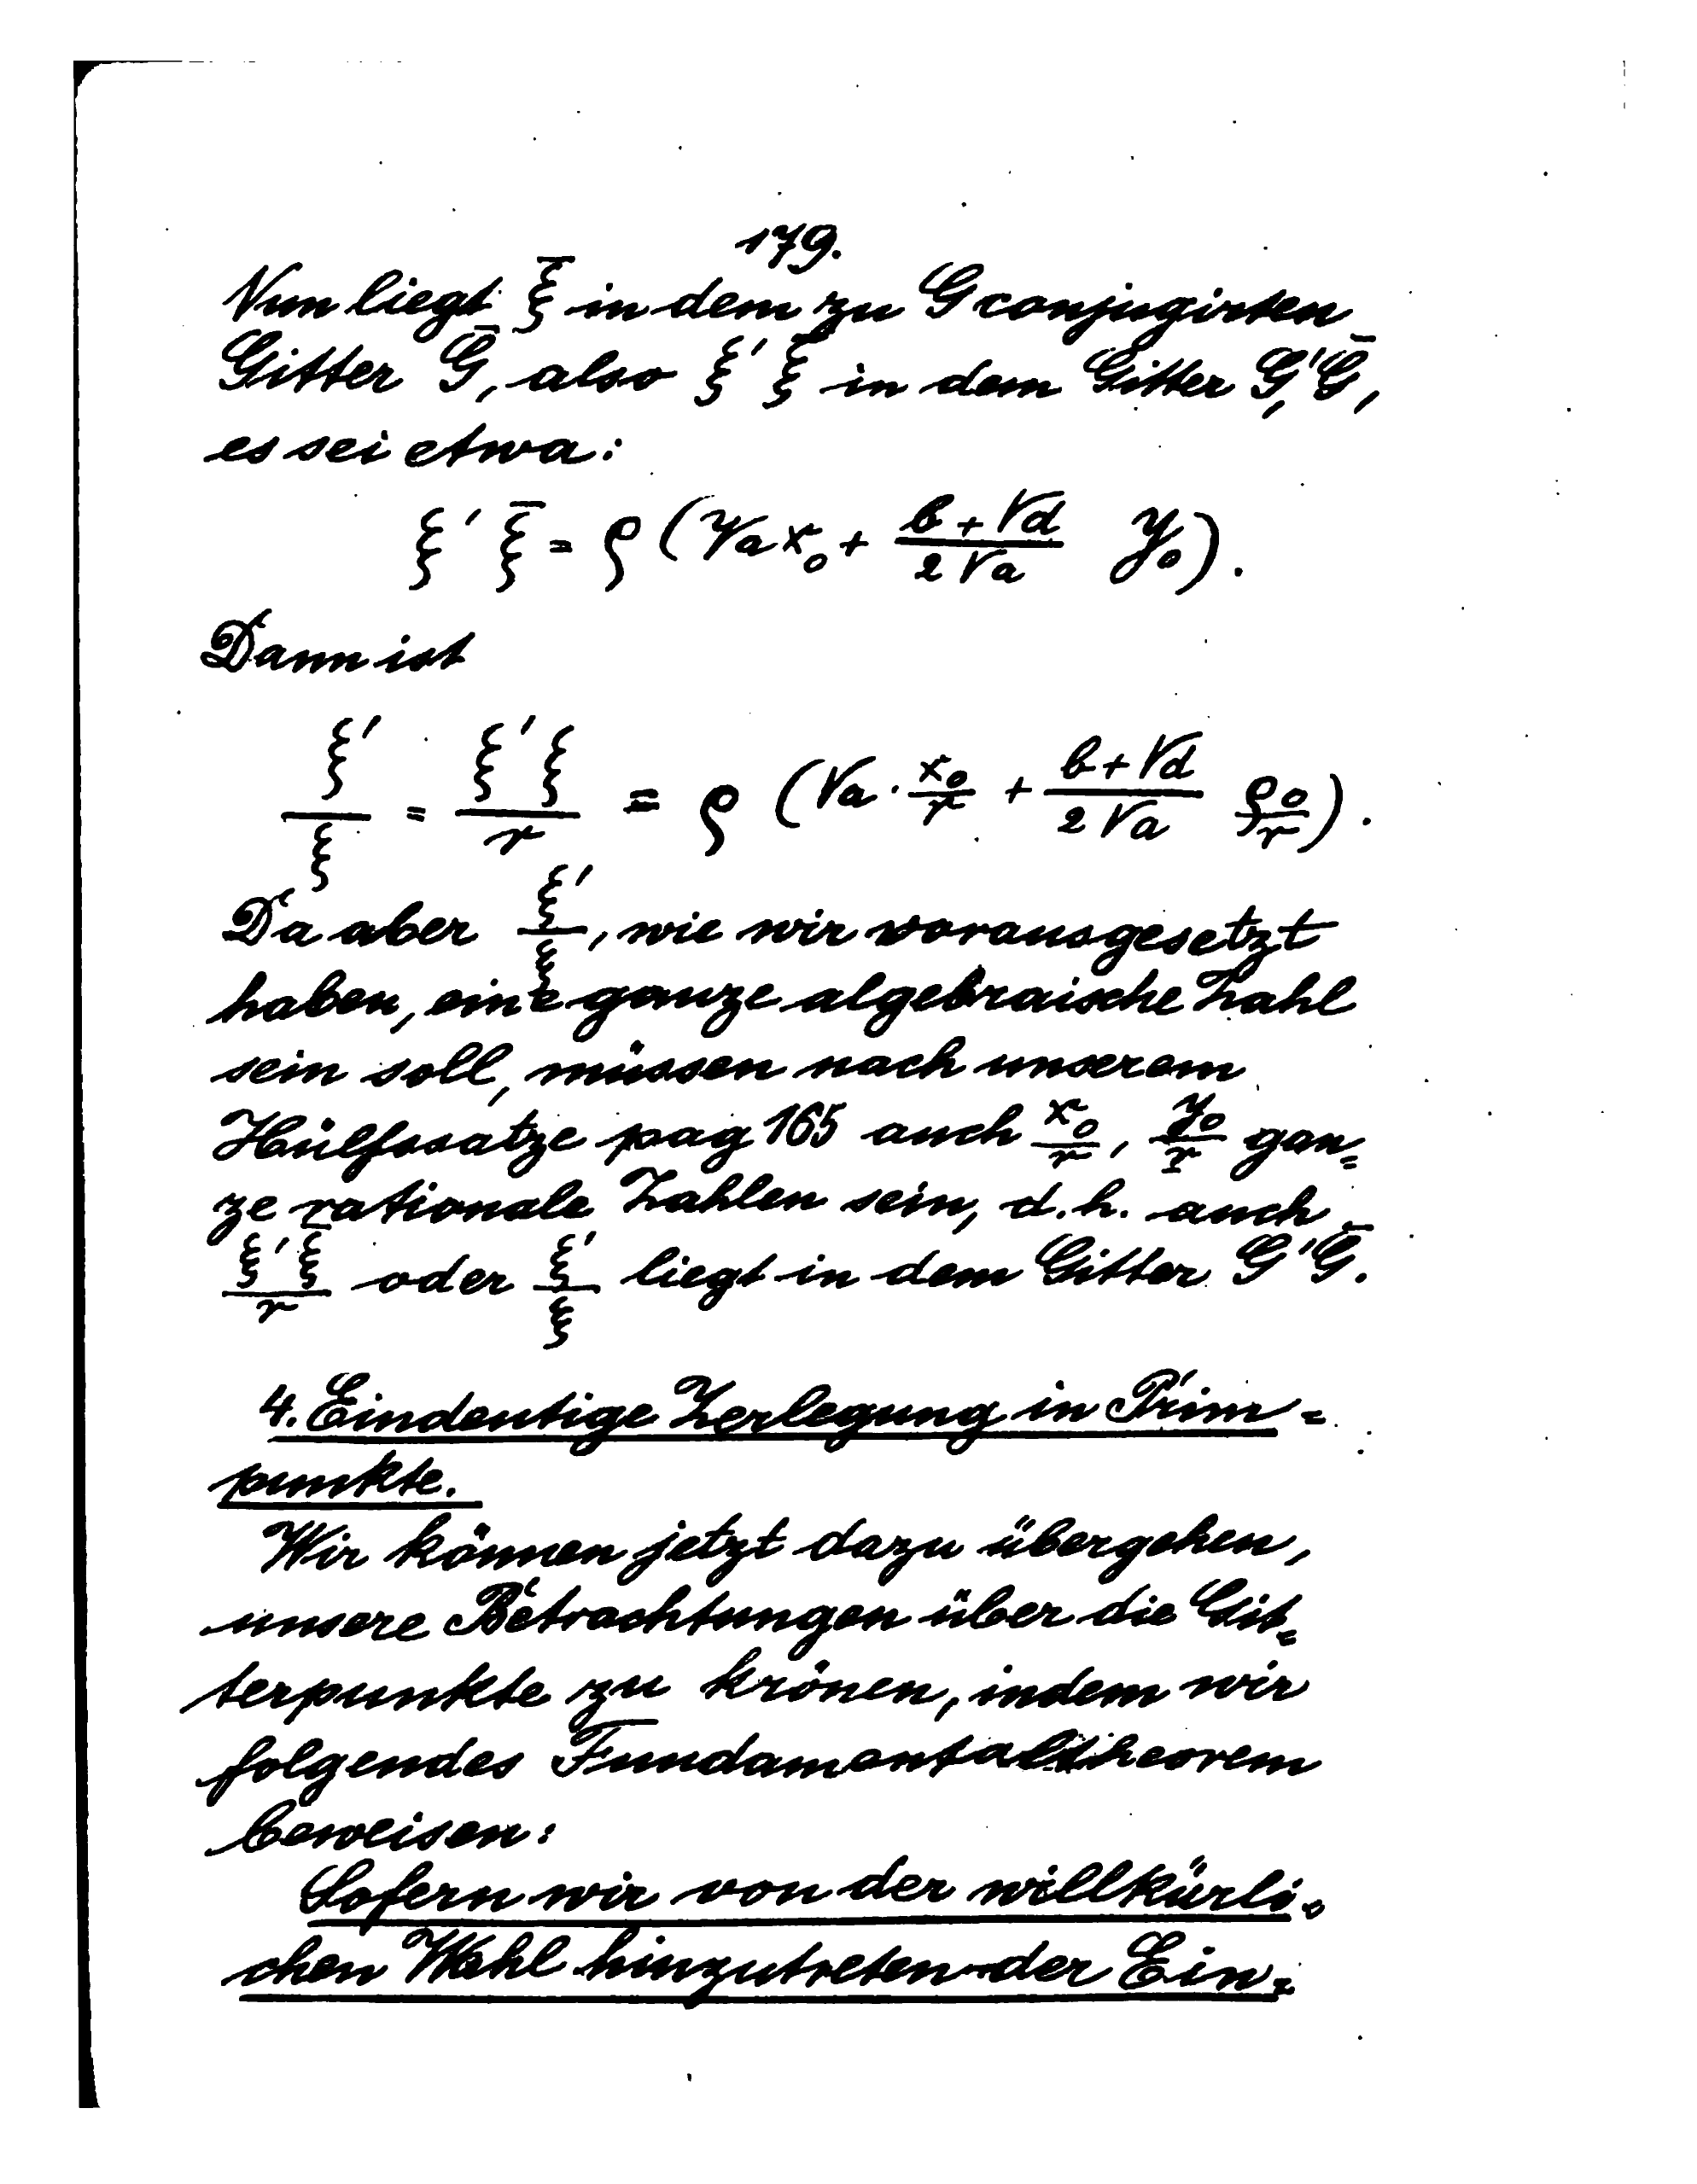 179.
Nun liegt ξ̄ in dem zu G conjugirten
Gitter Ḡ, also ξ' ξ̄ in dem Gitter G'Ḡ,
es sei etwa:
ξ' ξ̄ = ρ (√a x₀ + (b+√d)/(2√a) y₀).
Dann ist
ξ'/ξ = ξ'ξ/r = ρ (√a · x₀/r + (b+√d)/(2√a) ρ₀/r).
Da aber ξ'/ξ, wie wir vorausgesetzt
haben, eine ganze algebraische Zahl
sein soll, müssen nach unserem
Hülfssatze pag 165 auch x₀/r, y₀/r gan=
ze rationale Zahlen sein, d.h. auch
ξ'ξ̄/r oder ξ'/ξ liegt in dem Gitter G'Ḡ.
4. Eindeutige Zerlegung in Prim=
punkte.
Wir können jetzt dazu übergehen,
unsere Betrachtungen über die Git=
terpunkte zu krönen, indem wir
folgendes Fundamentaltheorem
beweisen:
Sofern wir von der willkürli=
chen Wahl hinzutretender Ein=